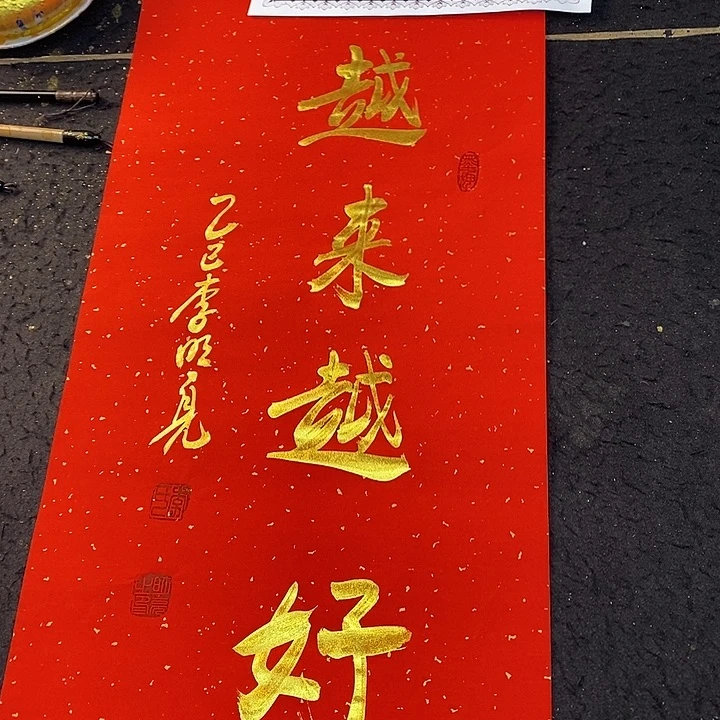 越来越好
乙巳李明亮